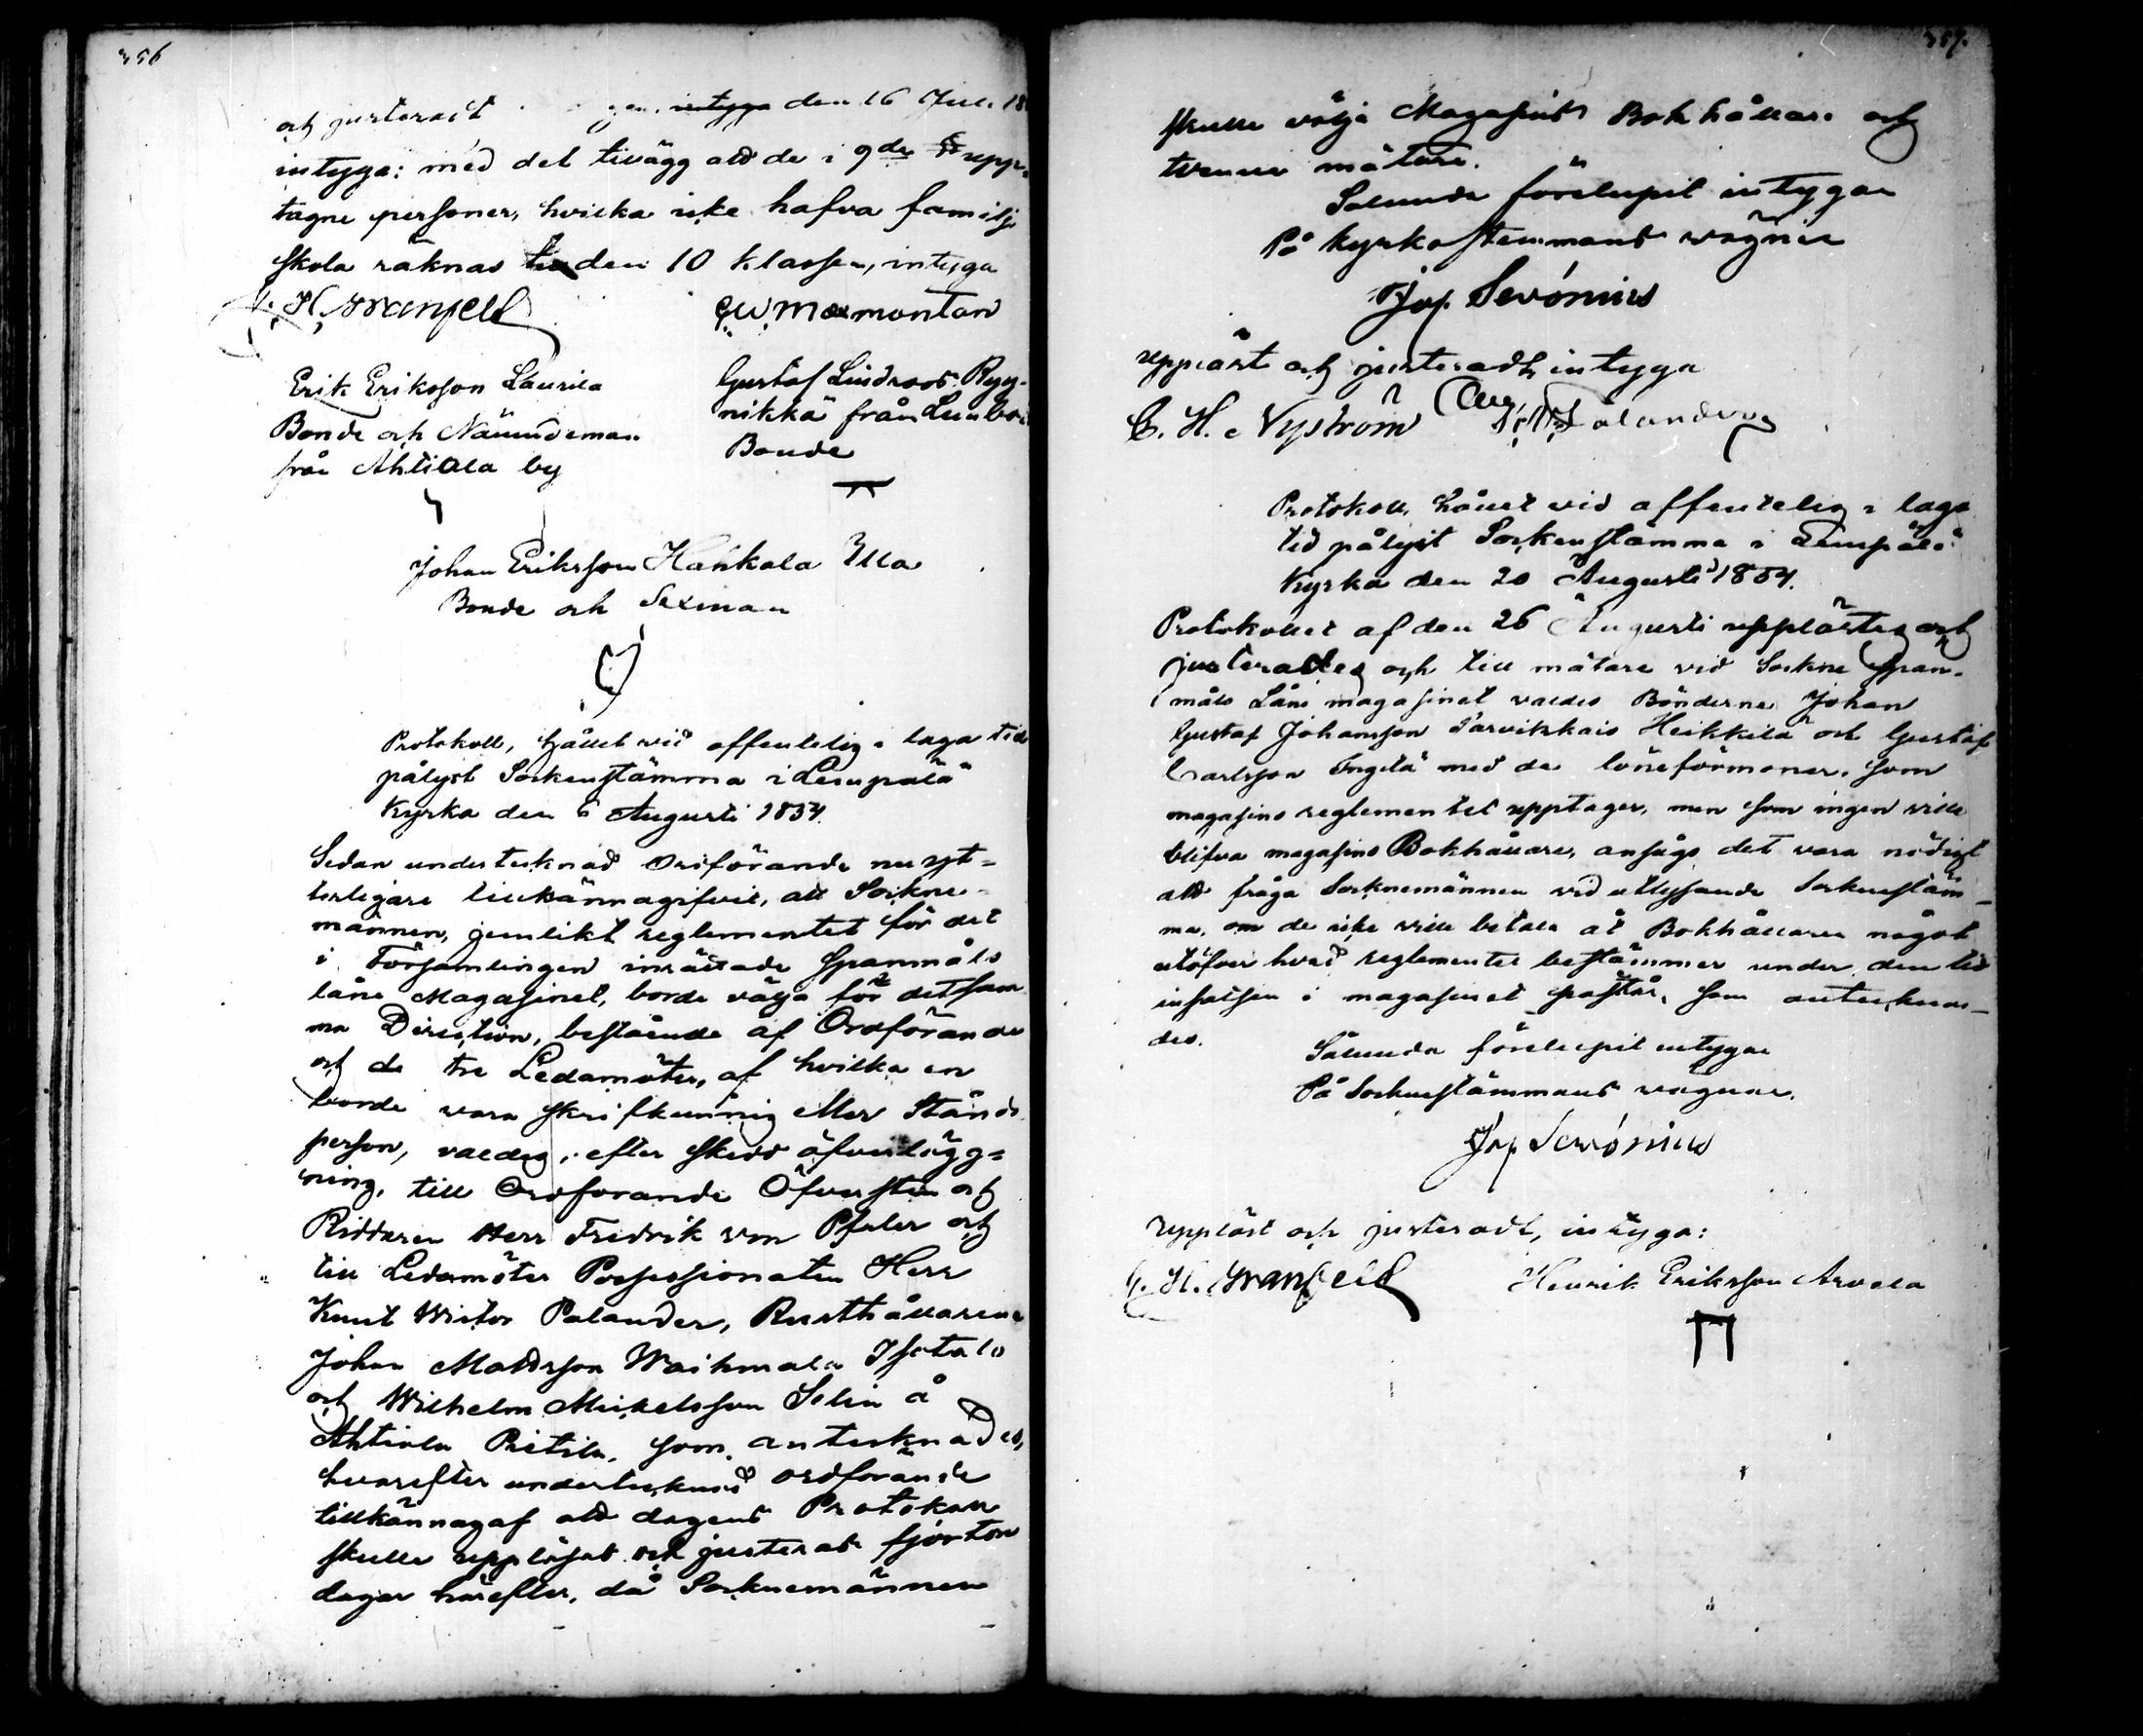 356
och justeradt intyga den 16 Juli 18
intyga: med det tilägg att de i 9de upp-
tagne personer, hvilka icke hafva familj,
skola räknas till den 10 klassen, intyga
G. H. Granfeld C W Maxmontan
Erik Eriksson Laurila Gustaf Lindroos Ryy-
Bonde och Nämndeman nikkä från Lembois
från Ahtiala by Bonde
Johan Eriksson Hahkala Illa
Bonde och Sexman
Protokoll, hållet vid offentelig i laga tid
pålyst Sockenstämma i Lempälä
Kyrka den 6 Augusti 1854.
Sedan undertecknad Ordförande nu yt-
terligare tillkännagifvit, att Sockne-
männen, jemlikt reglementet för det
i Församlingen inrättade Spanmåls
låne Magasinet, borde välja för detsam
ma Direction, bestående af Ordförande
och de tre Ledamöter, af hvilka en
borde vara skrifkunnig eller Stånds
person, valdes, efter skedd öfverlägg-
ning, till Ordförande Öfversten och
Riddaren Herr Fredrik von Pfaler och
till Ledamöter Possessionaten Herr
Knut Wictor Palander, Rusthållarena
Johan Mattsson Waihmala Isotalo
och Wilhelm Mickelsson Selin å
Ahtiala Pietilä, som antecknades,
hvarefter undertecknad ordförande
tillkännagaf att dagens Protokoll
skulle uppläsas och justeras fjorton
dagar härefter, då Socknemännen
357.
skulle välja Magasins Bokhållare och
tvenne mätare.
Sålunda förelupit intygar
På Kyrkostemmans vägnar
Jos. Serónius
uppläst och justeradt, intyga
C. H. Nyström Palander
Protokoll, hållet vid offentelig i laga
tid pålyst Sockenstämma i Lempälä
Kyrka den 20 Augusti 1854.
Protokollet af den 26 Augusti upplästes och
justerades och till mätare vid Sockne Span-
måls Låne magasinet valdes Bönderne Johan
Gustaf Johansson Sarvikkais Heikkilä och Gustaf
Carlsson Ingelä med de löneförmoner, som
magasins reglementet upptager, men som ingen ville
blifva magasins Bokhållare, ansågs det vara nödigt
att fråga Socknemännen vid utlysande Sockenstäm-
ma, om de icke ville betala åt Bokhållaren något
utöfver hvad reglementet bestämmer under den tid
insatsen i magasinet påstår, som anteckna-
des.
Sålunda förelupit intygar
På Sockenstämmans vägnar.
Jos Serónius
Uppläst och justeradt, intyga:
G. H. Granfeld Henrik Eriksson Arvela